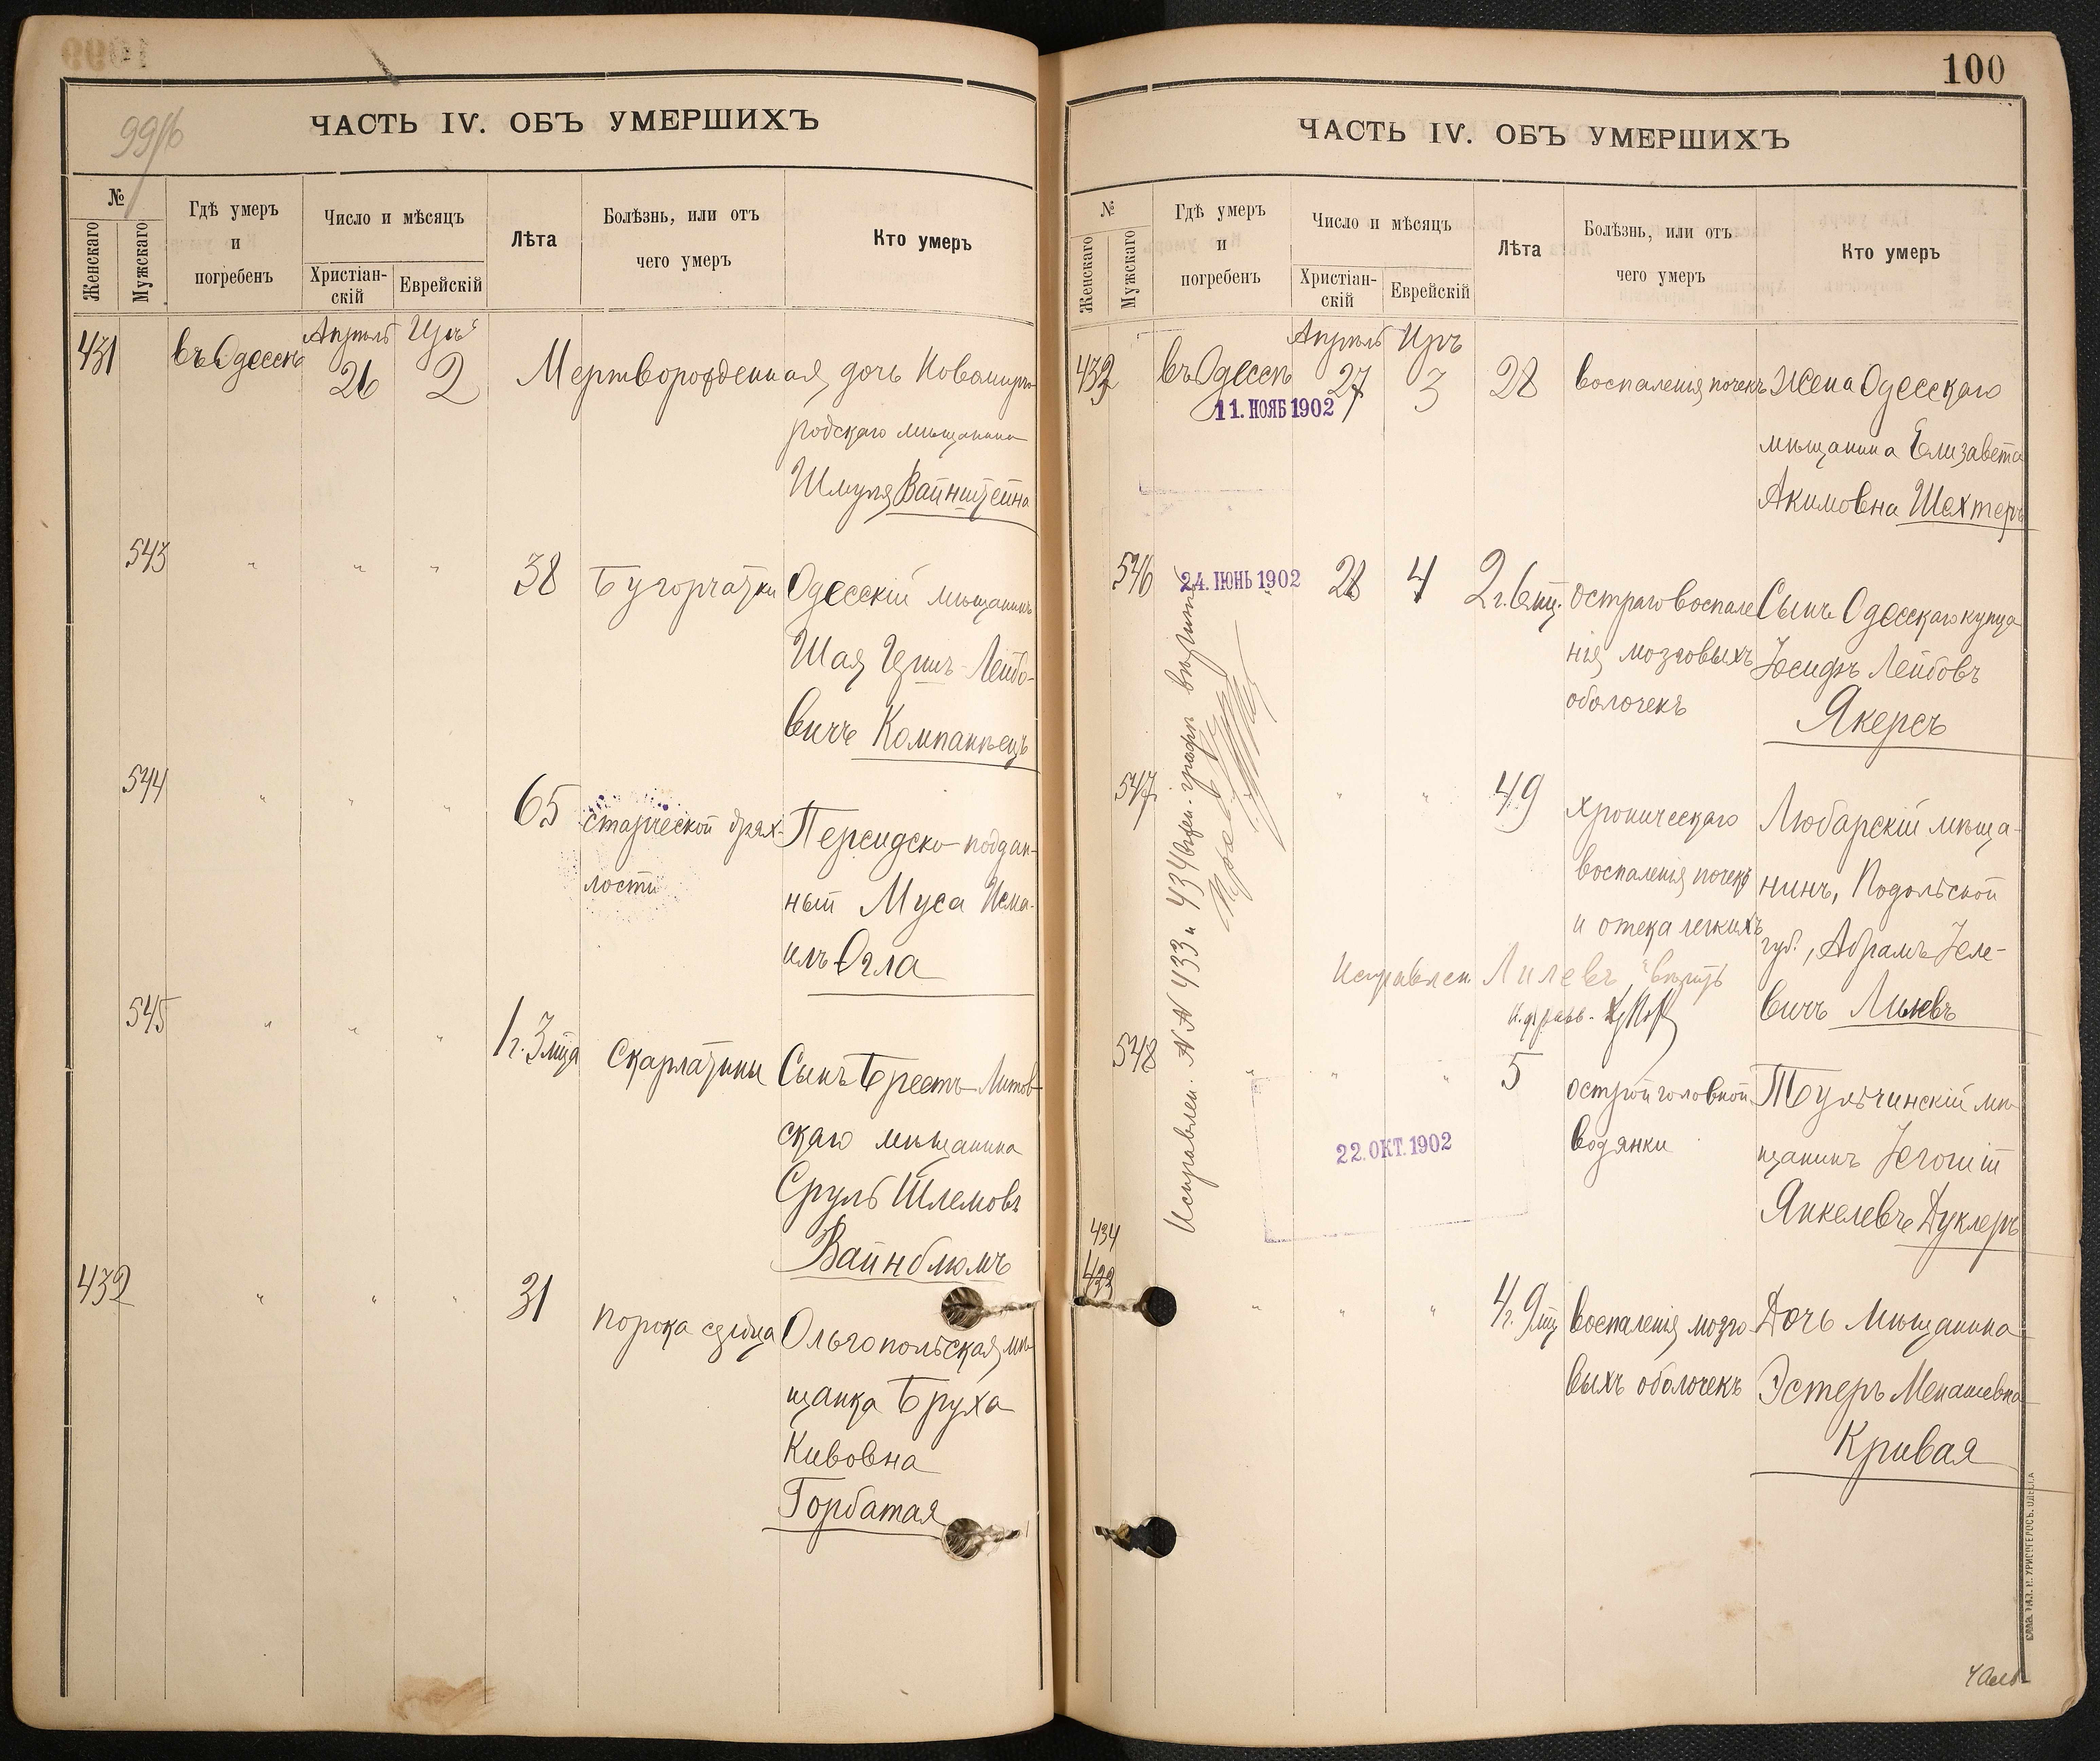 99/б
ЧАСТЬ IV. ОБЪ УМЕРШИХЪ
№
Женскаго
Мужскаго
Гдѣ умеръ
и
погребенъ
Число и мѣсяцъ
Христіан-
скій
Еврейскій
Лѣта
Болѣзнь, или отъ
чего умеръ
Кто умеръ
431 въ Одессѣ Апрѣль 26 Иръ 2 Мертворожденная дочь Новомирго-
родскаго мѣщанина
Шмуля Вайнштейна
543 " " " 38 Бугорчатки Одесскій мѣщанинъ
Шая Лейбо-
вичъ Компанѣецъ
544 " " " 65 старческой дрях- Персидско-поддан-
лости ный Муса Исма-
илъ Огла
545 " " " 1 г. 3 мца Скарлатины Сынъ Брестъ-Литов-
скаго мѣщанина
Сруль Шлемовъ
Вайнблюмъ
432 " " " 31 порока сердца Ольгопольская мѣ-
щанка Бруха
Кивовна
Горбатая
100
ЧАСТЬ IV. ОБЪ УМЕРШИХЪ
№
Женскаго
Мужскаго
Гдѣ умеръ
и
погребенъ
Число и мѣсяцъ
Христіан-
скій
Еврейскій
Лѣта
Болѣзнь, или отъ
чего умеръ
Кто умеръ
433 въ Одессѣ Апрѣль 27 Иръ 3 28 воспаленія почекъ Жена Одесскаго
11. НОЯБ 1902
мѣщанина Елизавета
Акимовна Шехтеръ
546 24. ІЮНЬ 1902 28 4 2 г. 6 мц. остраго воспале Сынъ Одесскаго купца
нія мозговыхъ Іосифъ Лейбовъ
оболочекъ Якерсъ
547 " " 49 хроническаго Любарскій мѣща-
воспаленія почекъ нинъ, Подольской
и отека легкихъ губ., Абрамъ Іоле-
вичъ Лилевъ
Исправлен Лилевъ вѣрить
Исправлен. №№ 433 и 434 вѣрить
548 " " " 5 острой головной Тульчинскій мѣ-
водянки щанинъ
22. ОКТ. 1902
Янкелевъ Дуклеръ
434
433 " " " 4 г. 9 мц воспаленія мозго- Дочь мѣщанина
выхъ оболочекъ Эстеръ Менашевна
Кривая